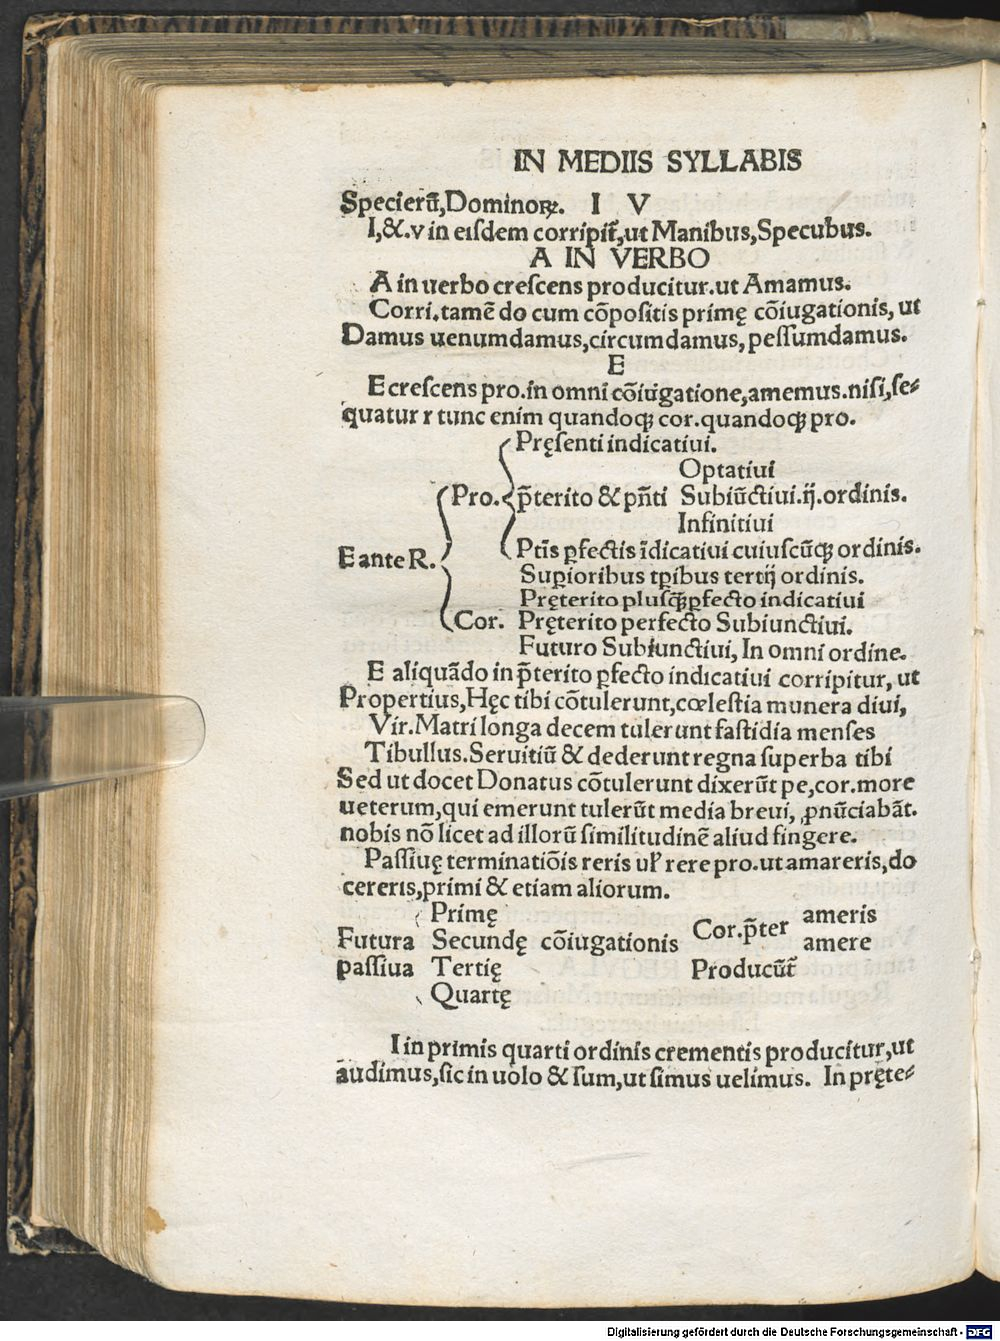 IN MEDIIS SYLLABIS
Specierũ,Dominoꝝ. I V
I,&.v in eiſdem corripiť,ut Manibus,Specubus.
A IN VERBO
A in uerbo creſcens producitur.ut Amamus.
Corri.tamẽ do cum cõpoſitis primę cõiugationis, ut
Damus uenumdamus,circumdamus,peſſumdamus.
E
E creſcens pro.in omni cõiugatione,amemus.niſi,ſe⸗
quatur r tunc enim quandoqꝫ cor.quandoqꝫ pro.
Pręſenti indicatiui.
Optatiui
Pro. p̃terito & pñti Subiũctiui.ij.ordinis.
Infinitiui
E ante R. Ptĩs ꝑfectis ĩdicatiui cuiuſcũqꝫ ordinis.
Suꝑioribus tꝑibus tertij ordinis.
Pręterito pluſqꝫꝑfecto indicatiui
Cor. Pręterito perfecto Subiunctiui.
Futuro Subiunctiui, In omni ordine.
E aliquãdo in p̃terito ꝑfecto indicatiui corripitur, ut
Propertius,Hęc tibi cõtulerunt,cœleſtia munera diui,
Vir.Matri longa decem tulerunt faſtidia menſes
Tibullus.Seruitiũ & dederunt regna ſuperba tibi
Sed ut docet Donatus cõtulerunt dixerũt pe,cor.more
ueterum,qui emerunt tulerũt media breui, ꝓnũciabãt.
nobis nõ licet ad illorũ ſimilitudinẽ aliud fingere.
Paſſiuę terminatiõis reris uł rere pro.ut amareris,do
cereris,primi & etiam aliorum.
Primę ameris
Futura Secundę cõiugationis Cor.p̃ter amere
paſſiua Tertię Producũt̃
Quartę
I in primis quarti ordinis crementis producitur,ut
audimus,ſic in uolo & ſum,ut ſimus uelimus. In pręte⸗
Digitalisierung gefördert durch die Deutsche Forschungsgemeinschaft - DFG